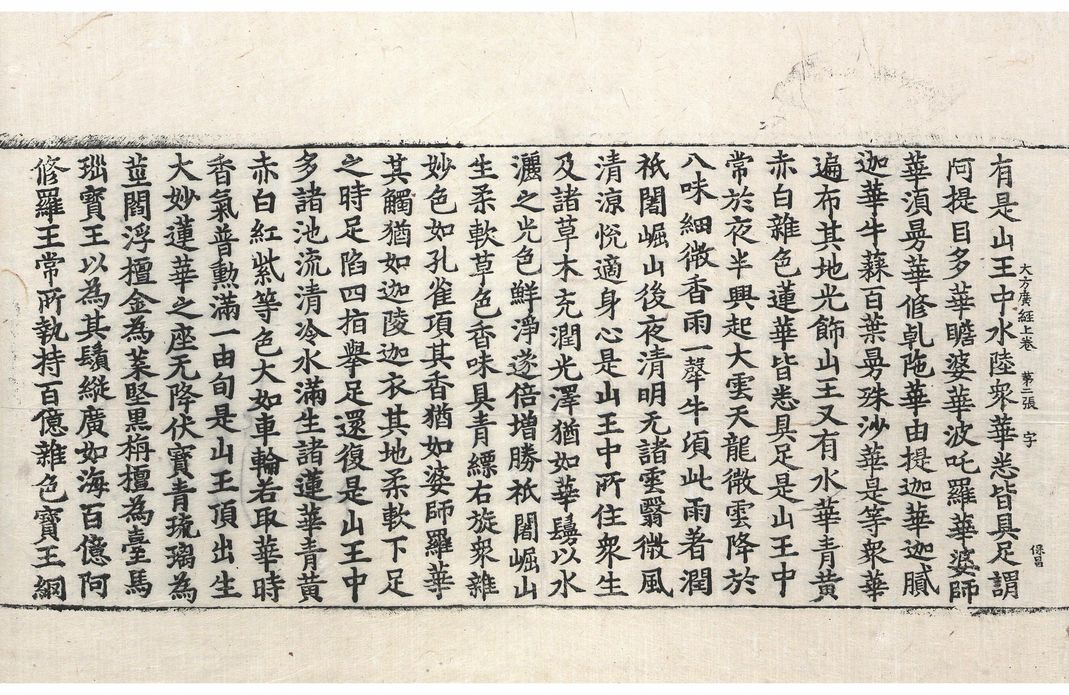 大方廣経上卷 第二張 字 保昌
有是山王中水陸衆華悉皆具足謂
阿提目多華瞻婆華波吒羅華婆師
華湏曼華修乹陁華由提迦華迦膩
迦華牛蘓百葉曼殊沙華是等衆華
遍布其地光飾山王又有水華青黃
赤白雜色蓮華皆悉具足是山王中
常於夜半興起大雲天龍微雲降於
八味細微香雨一𤛓牛頃此雨著潤
祇闍崛山後夜清明无諸雲翳微風
清涼悅適身心是山王中所住衆生
及諸草木充潤光澤猶如華鬘以水
灑之光色鮮淨遂倍增勝祇闍崛山
生柔軟草色香味具青縹右旋衆雜
妙色如孔雀項其香猶如婆師羅華
其觸猶如迦陵迦衣其地柔軟下足
之時足陷四指舉足還復是山王中
多諸池流清冷水滿生諸蓮華青黃
赤白紅紫等色大如車輪若取華時
香氣普勳滿一由旬是山王頂出生
大妙蓮華之座无降伏寶青琉璃為
莖閻浮檀金為葉堅黑栴檀為臺馬
瑙寶王以為其鬚縱廣如海百億阿
修羅王常所執持百億雜色寶王綱